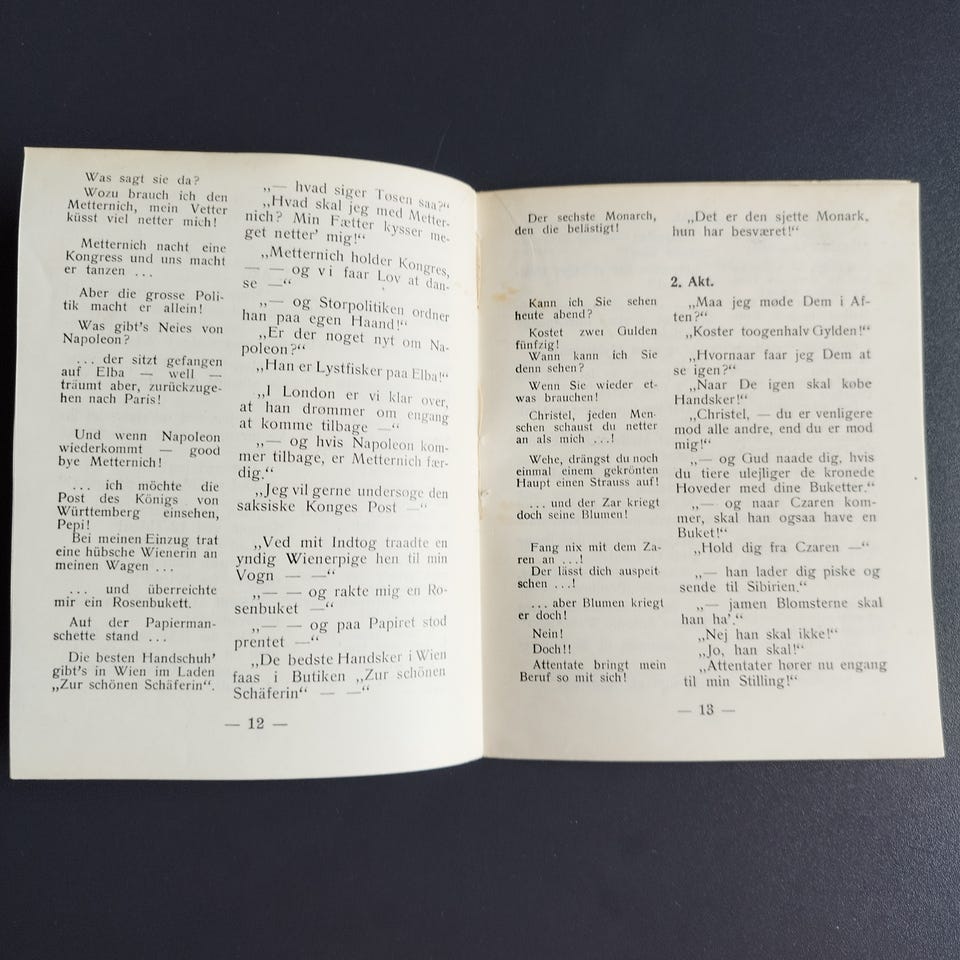 Was sagt sie da?
Wozu brauch ich den
Metternich, mein Vetter
küsst viel netter mich!
Metternich nacht eine
Kongress und uns macht
er tanzen ...
Aber die grosse Poli-
tik macht er allein!
Was gibt's Neies von
Napoleon?
... der sitzt gefangen
auf Elba — well —
träumt aber, zurückzuge-
hen nach Paris!
Und wenn Napoleon
wiederkommt — good
bye Metternich!
... ich möchte die
Post des Königs von
Württemberg einsehen,
Pepi!
Bei meinen Einzug trat
eine hübsche Wienerin an
meinen Wagen ...
... und überreichte
mir ein Rosenbukett.
Auf der Papierman-
schette stand ...
Die besten Handschuh'
gibt's in Wien im Laden
„Zur schönen Schäferin“.
„— hvad siger Tøsen saa?“
„Hvad skal jeg med Metter-
nich? Min Fætter kysser me-
get netter' mig!“
„Metternich holder Kongres,
— — og vi faar Lov at dan-
se —“
„— og Storpolitiken ordner
han paa egen Haand!“
„Er der noget nyt om Na-
poleon?“
„Han er Lystfisker paa Elba!“
„I London er vi klar over,
at han drommer om engang
at komme tilbage —“
„— og hvis Napoleon kom-
mer tilbage, er Metternich fær-
dig.“
„Jeg vil gerne undersoge den
saksiske Konges Post —“
„Ved mit Indtog traadte en
yndig Wienerpige hen til min
Vogn — —“
„— — og rakte mig en Ro-
senbuket —“
„— — og paa Papiret stod
prentet —“
„De bedste Handsker i Wien
faas i Butiken „Zur schönen
Schäferin“ — —“
— 12 —
Der sechste Monarch,
den die belästigt!
„Det er den sjette Monark,
hun har besværet!“
2. Akt.
Kann ich Sie sehen
heute abend?
Kostet zwei Gulden
fünfzig!
Wann kann ich Sie
denn sehen?
Wenn Sie wieder et-
was brauchen!
Christel, jeden Men-
schen schaust du netter
an als mich ...!
Wehe, drängst du noch
einmal einem gekrönten
Haupt einen Strauss auf!
... und der Zar kriegt
doch seine Blumen!
Fang nix mit dem Za-
ren an ...!
Der lässt dich auspeit-
schen ...!
... aber Blumen kriegt
er doch!
Nein!
Doch!!
Attentate bringt mein
Beruf so mit sich!
„Maa jeg møde Dem i Af-
ten?“
„Koster toogenhalv Gylden!“
„Hvornaar faar jeg Dem at
se igen?“
„Naar De igen skal købe
Handsker!“
„Christel, — du er venligere
mod alle andre, end du er mod
mig!“
„— og Gud naade dig, hvis
du tiere ulejliger de kronede
Hoveder med dine Buketter.“
„— og naar Czaren kom-
mer, skal han ogsaa have en
Buket!“
„Hold dig fra Czaren —“
„— han lader dig piske og
sende til Sibirien.“
„— jamen Blomsterne skal
han ha'.“
„Nej han skal ikke!“
„Jo, han skal!“
„Attentater hører nu engang
til min Stilling!“
— 13 —